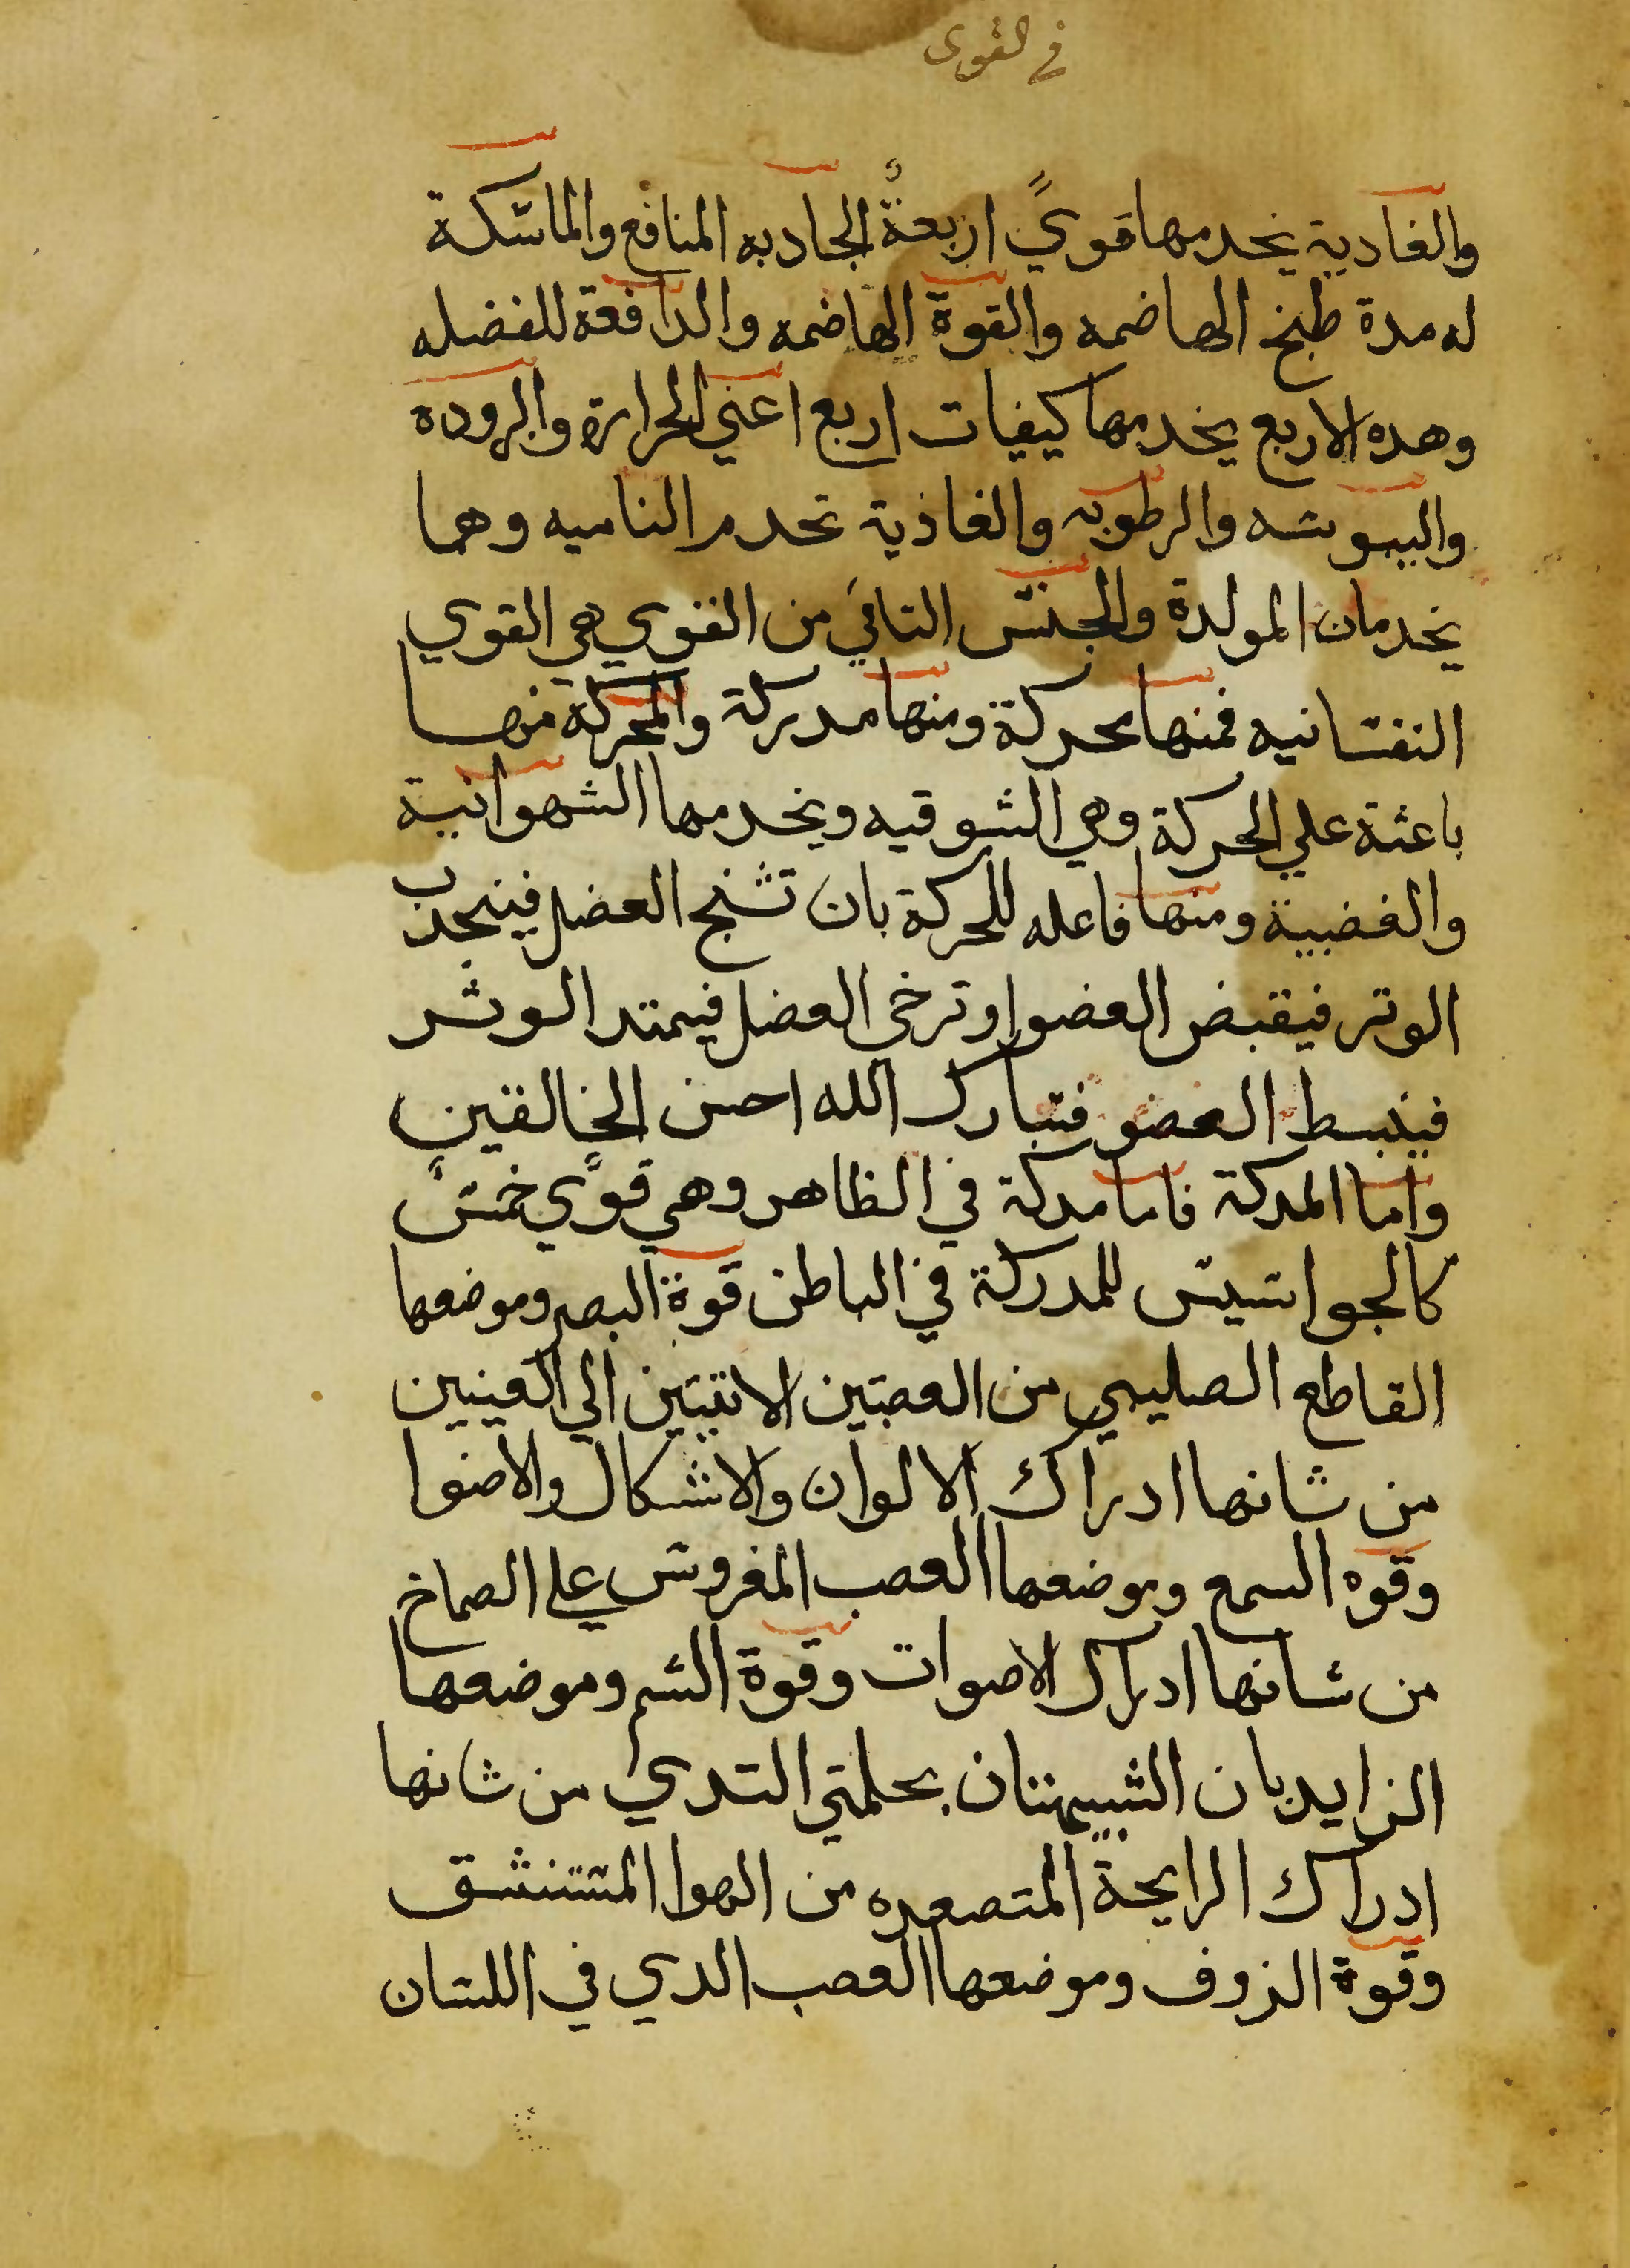 في القوى
والغادية يخدمها قويً اربعةٌ الجادبه المنافع والماسكة
له مدة طبخ الهاضمه والقوة الهاضمه والدافعة للفضله
وهده الاربع يخدمها كيفيات اربع اعني الحرارة والبروده
واليبوسه والرطوبه والغاذية تخدم الناميه وهما
يخدمان المولدة والجنس التاني من القوي هي القوي
النفسانيه فمنها محركة ومنها مدركة والمحركة منها
باعثة علي الحركة وهي الشوقيه ويخدمها الشهوانية
والغضبية ومنها فاعله للحركة بان تشنج العضل فينجدب
الوتر فيقبض العضو او ترخي العضل فيمتد الوثر
فينبسط العضو فتبارك الله احسن الخالقين
واما المدركة فاما مدركة في الظاهر وهي قوًي خمسً
كالجواسيس للمدركة في الباطن قوة البصر وموضعها
القاطع الصليبي من العصبتين الاتيتين الي العينين
من شانها ادراك الالوان والاشكال والاضوا
وقوه السمع وموضعها العصب المفروش علي الصماخ
من شانها ادراك الاصوات وقوة الشم وموضعها
الزايدبان الشبيهتان بحلمتي التدي من شانها
ادراك الرايحة المتصعده من الهوا المستنشق
وقوة الزوف وموضعها العصب الدي في اللسان